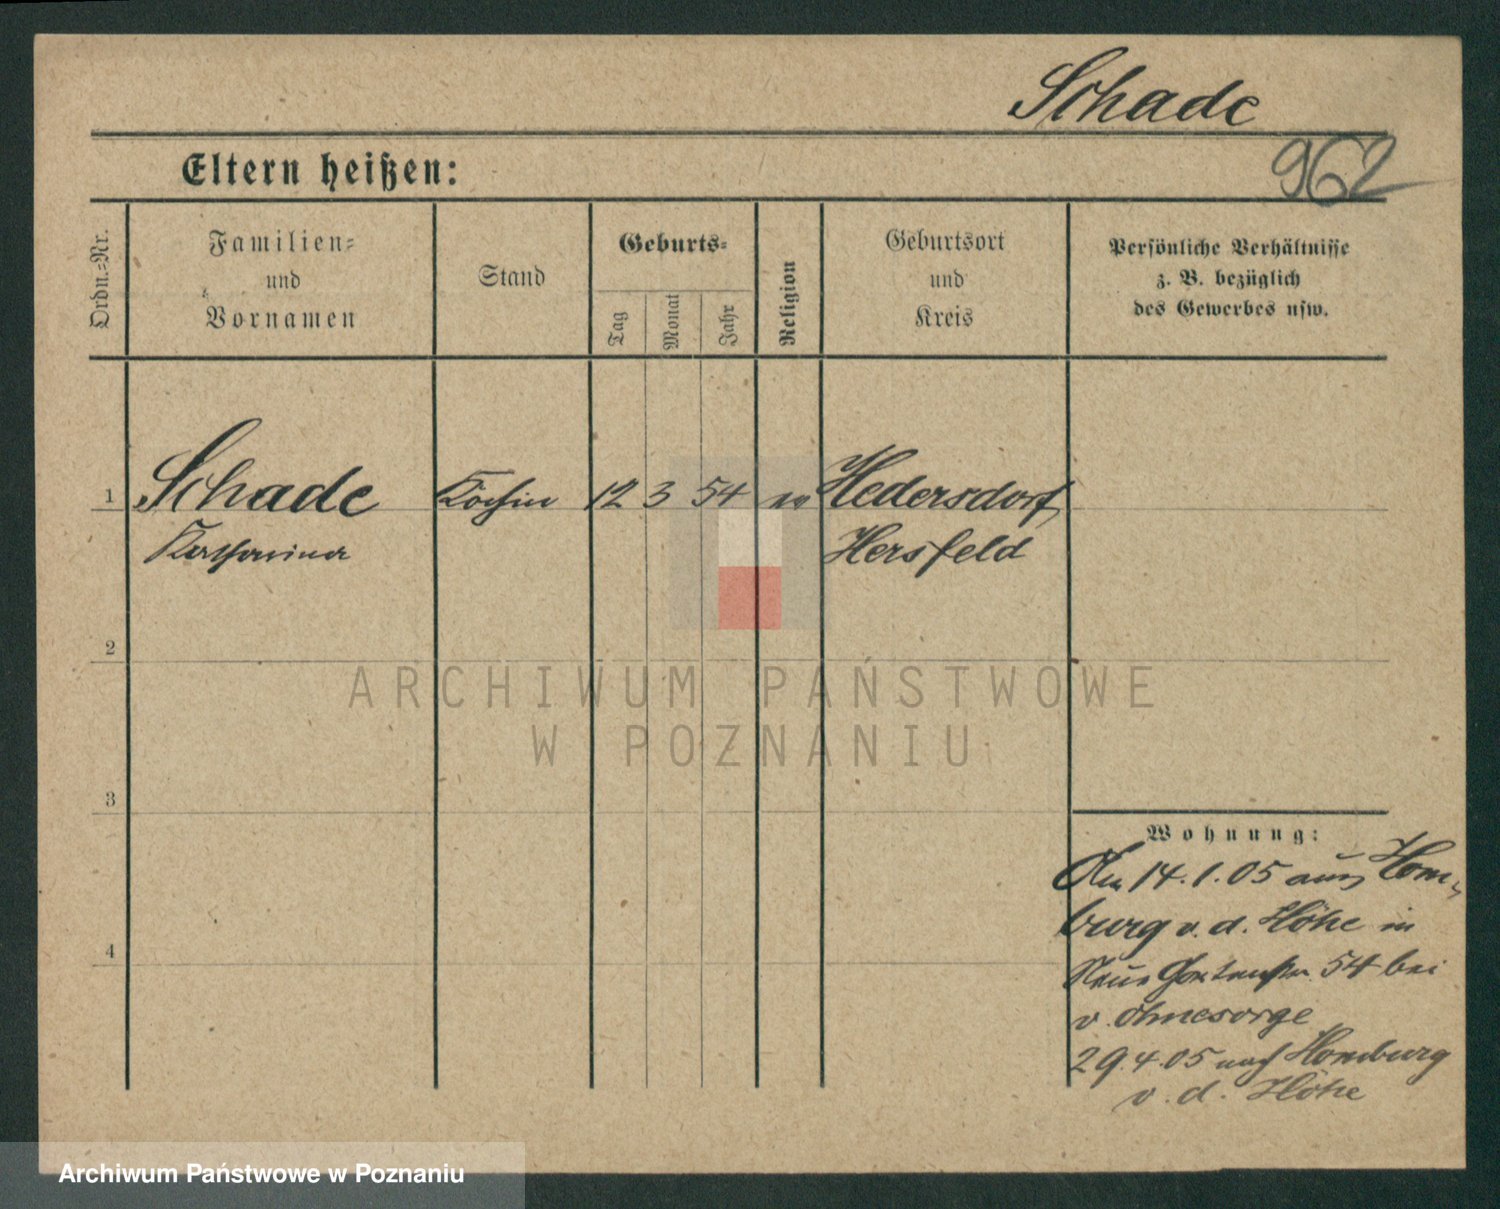 Schade
962
Eltern heißen:
Ordn.=Nr.
Familien=
und
Vornamen
Stand
Geburts=
Tag
Monat
Jahr
Religion
Geburtsort
und
Kreis
Persönliche Verhältnisse
z. B. bezüglich
des Gewerbes usw.
1 Schade Köchin 12 3 54 ev Hedersdorf,
Katharina Hersfeld
2
3
4
Wohnung:
Am 14.1.05 aus Hom-
burg v. d. Höhe in
Neue Gartenstr. 54 bei
v. Ohnesorge
29.4.05 nach Homburg
v. d. Höhe
ARCHIWUM PAŃSTWOWE
W POZNANIU
Archiwum Państwowe w Poznaniu